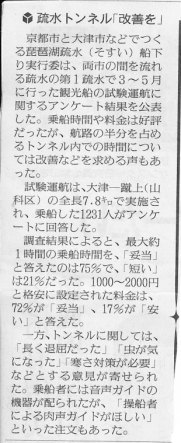 疏水トンネル「改善を」
京都市と大津市などでつく
る琵琶湖疏水(そすい)船下
り実行委は、両市の間を流れ
る疏水の第1疏水で3～5月
に行った観光船の試験運航に
関するアンケート結果を公表
した。乗船時間や料金は好評
だったが、航路の半分を占め
るトンネル内での時間につい
ては改善などを求める声もあ
った。
試験運航は、大津―蹴上(山
科区)の全長7.8㌔で実施さ
れ、乗船した1231人がアンケ
ートに回答した。
調査結果によると、最大約
1時間の乗船時間を、「妥当」
と答えたのは75%で、「短い」
は21%だった。1000～2000円
と格安に設定された料金は、
72%が「妥当」、17%が「安
い」と答えた。
一方、トンネルに関しては、
「長く退屈だった」「虫が気
になった」「寒さ対策が必要」
などとする意見が寄せられ
た。乗船者には音声ガイドの
機器が配られたが、「操船者
による肉声ガイドがほしい」
といった注文もあった。